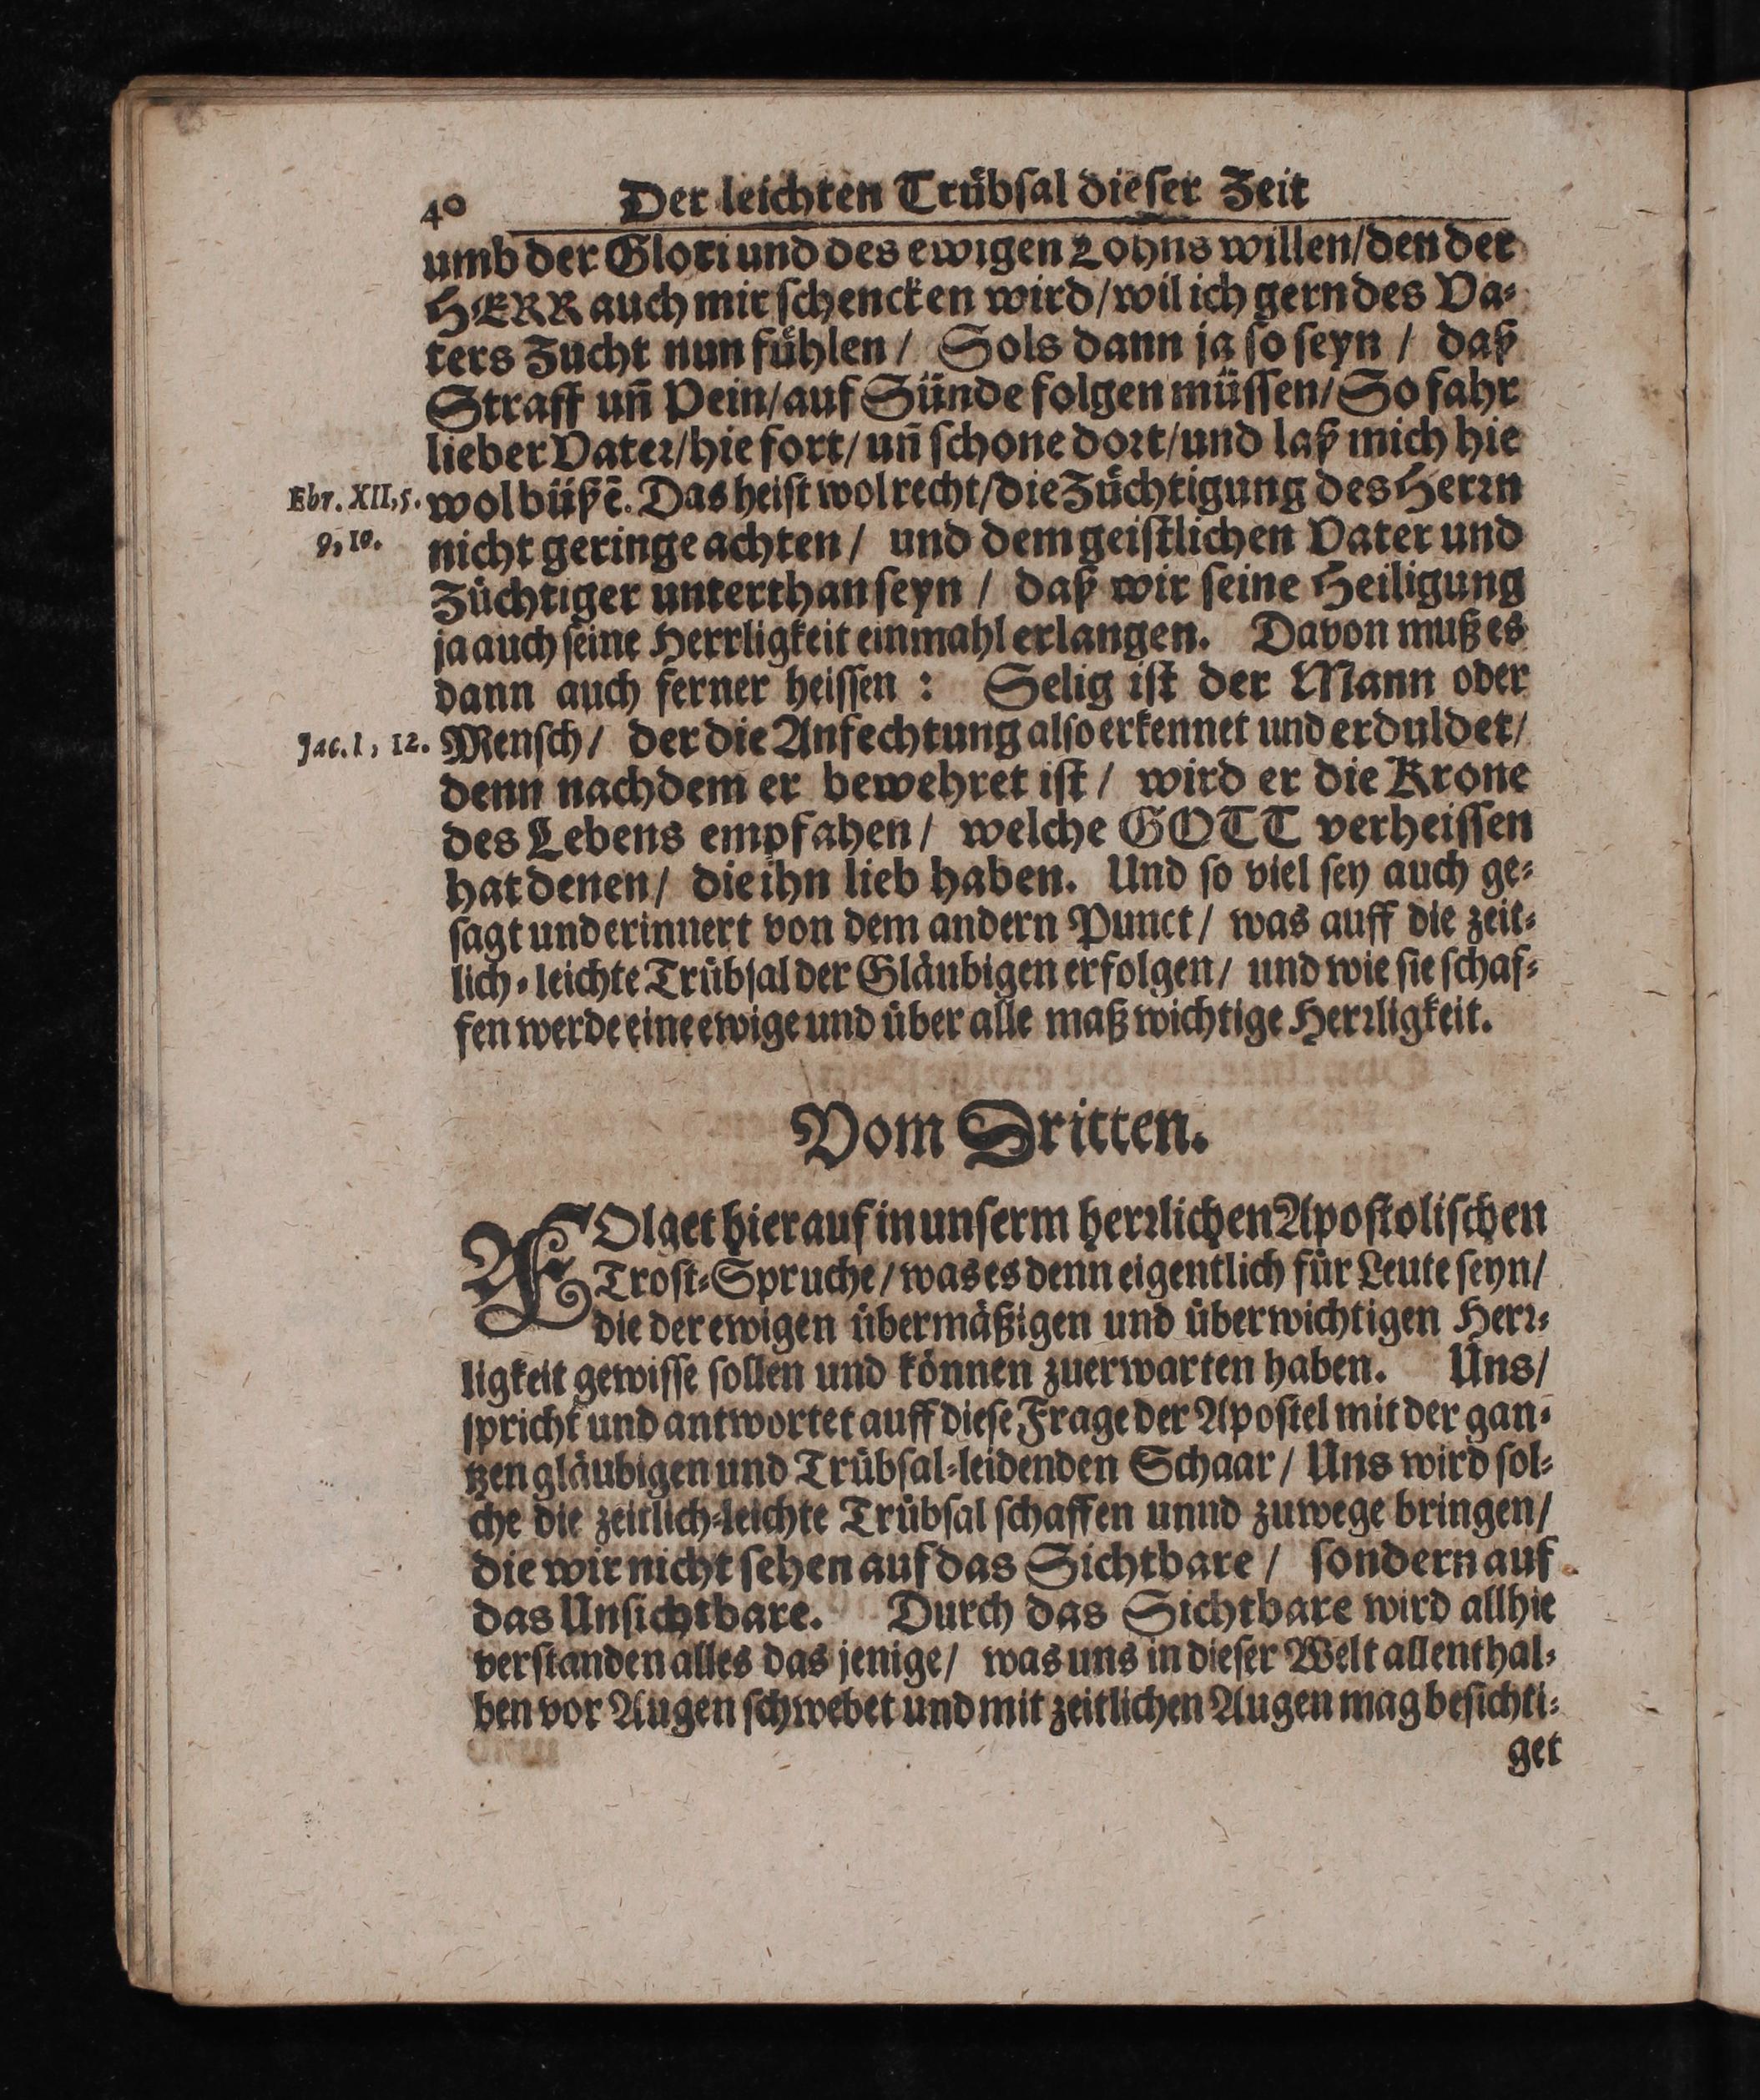 40 Der leichten Trübſal dieſer Zeit
umb der Glori und des ewigen Lohns willen/den der
HERR auch mir ſchencken wird/wil ich gern des Va-
ters Zucht nun fühlen/ Sols dann ja ſo ſeyn/ daß
Straff uñ Pein/auf Sünde folgen müſſen/So fahr
lieber Vater/hie fort/uñ ſchone dort/und laß mich hie
Ebr. XII, 5. wol büßē. Das heiſt wol recht/die Züchtigung des Herrn
9, 10. nicht geringe achten/ und dem geiſtlichen Vater und
Züchtiger unterthan ſeyn/ daß wir ſeine Heiligung
ja auch ſeine Herrligkeit einmahl erlangen. Davon muß es
dann auch ferner heiſſen: Selig iſt der Mann oder
Jac. I, 12. Menſch/ der die Anfechtung alſo erkennet und erduldet/
denn nachdem er bewehret iſt/ wird er die Krone
des Lebens empfahen/ welche GOTT verheiſſen
hat denen/ die ihn lieb haben. Und ſo viel ſey auch ge-
ſagt und erinnert von dem andern Punct/ was auff die zeit-
lich-leichte Trübſal der Gläubigen erfolgen/ und wie ſie ſchaf-
fen werde eine ewige und über alle maß wichtige Herrligkeit.
Vom Dritten.
FOlget hierauf in unſerm herrlichen Apoſtoliſchen
Troſt-Spruche/was es denn eigentlich für Leute ſeyn/
die der ewigen übermäßigen und überwichtigen Herr-
ligkeit gewiſſe ſollen und können zuerwarten haben. Uns/
ſpricht und antwortet auff dieſe Frage der Apoſtel mit der gan-
tzen gläubigen und Trübſal-leidenden Schaar/ Uns wird ſol-
che die zeitlich-leichte Trübſal ſchaffen unnd zuwege bringen/
die wir nicht ſehen auf das Sichtbare/ ſondern auf
das Unſichtbare. Durch das Sichtbare wird allhie
verſtanden alles das jenige/ was uns in dieſer Welt allenthal-
ben vor Augen ſchwebet und mit zeitlichen Augen mag beſichti-
get